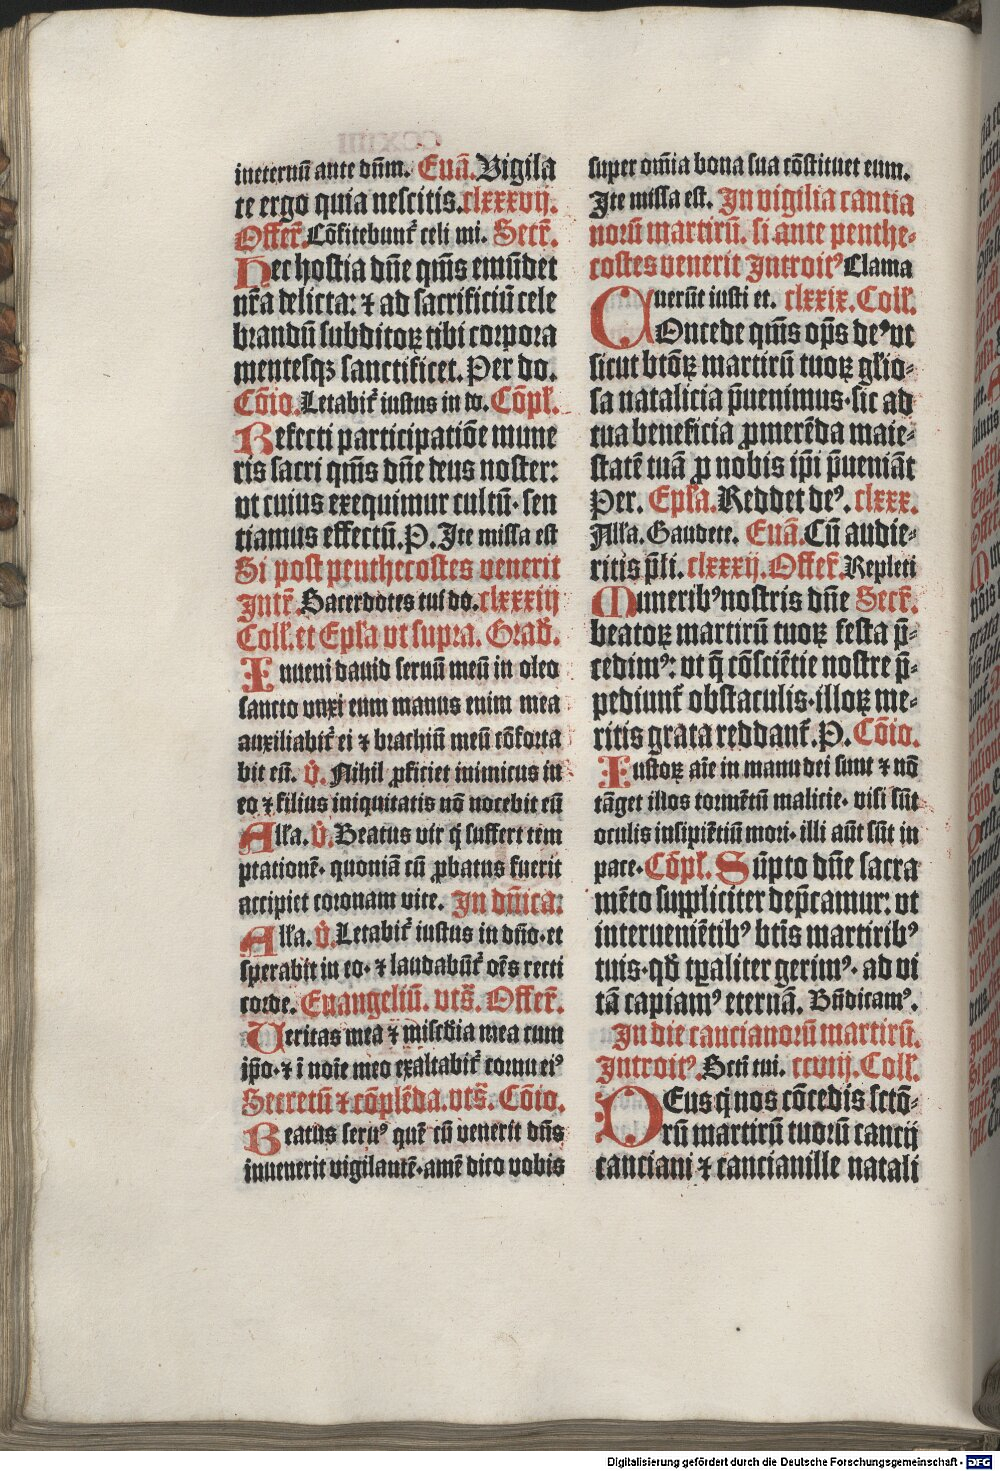 ineternū ante dn̄m. Euā. Vigila
te ergo quia nescitis. clxxxvij.
Offer̄. Cōfitebunt᷑ celi mi. Secr̄.
Hec hostia dn̄e qm̄s emūdet
nr̄a delicta: ⁊ ad sacrificiū cele
brandū subditoꝝ tibi corpora
mentesqꝫ sanctificet. Per do.
Cōio. Letabit᷑ iustus in do. Cōpl̄.
Refecti participatiōe mune
ris sacri qm̄s dn̄e deus noster:
vt cuius exequimur cultū· sen
tiamus effectū. P. Ite missa est
Si post penthecostes venerit
Intr̄. Sacerdotes tui do. clxxxiij
Coll̄. et Ep̄la vt supra. Grad̄.
Inueni dauid seruū meū in oleo
sancto vnxi eum manus enim mea
auxiliabit᷑ ei ⁊ brachiū meū cōforta
bit eū. v̄. Nihil ꝓficiet inimicus in
eo ⁊ filius iniquitatis nō nocebit eū
Alla. v̄. Beatus vir q̇ suffert tem
ptationē· quoniā cū ꝓbatus fuerit
accipiet coronam vite. In dn̄ica:
Alla. v̄. Letabit᷑ iustus in dn̄o· et
sperabit in eo· ⁊ laudabūt᷑ oēs recti
corde. Euangeliū. vts̄. Offer̄.
Veritas mea ⁊ mis̄cdia mea cum
ip̄o· ⁊ ī noīe meo exaltabit᷑ cornu eiꝰ
Secretū ⁊ cōplēda. vts̄. Cōio.
Beatus seruꝰ quē cū venerit dn̄s
inuenerit vigilantē· amē dico vobis
super om̄ia bona sua cōstituet eum.
Ite missa est. In vigilia cantia
norū martirū. si ante penthe⸗
costes venerit Introitꝰ Clama
uerūt iusti et. clxxix. Coll̄.
COncede qm̄s op̄s deꝰ vt
sicut btōꝝ martirū tuoꝝ gl̄io⸗
sa natalicia p̄uenimus· sic ad
tua beneficia ꝓmerēda maie⸗
statē tuā ꝓ nobis ip̄i p̄ueniāt
Per. Ep̄la. Reddet deꝰ. clxxx.
Alla. Gaudete. Euā. Cū audie⸗
ritis p̄li. clxxxij. Offer̄. Repleti
Muneribꝰ nostris dn̄e Secr̄.
beatoꝝ martirū tuoꝝ festa p̄⸗
cedimꝰ: vt q̄ cōsciētie nostre p̄⸗
pediunt᷑ obstaculis· illoꝝ me⸗
ritis grata reddant᷑. P. Cōio.
Iustoꝝ aīe in manu dei sunt ⁊ nō
tāget illos tormētū malicie· visi sūt
oculis insipiētiū mori· illi aūt sūt in
pace· Cōpl̄. Sūpto dn̄e sacra
mēto suppliciter dep̄camur: vt
interueniētibꝰ bt̄is martiribꝰ
tuis· qd̄ tp̄aliter gerimꝰ· ad vi
tā capiamꝰ eternā. Bn̄dicamꝰ.
In die cancianorū martirū.
Introitꝰ. Sctī tui. ccviij. Coll̄.
DEus q̇ nos cōcedis sctō⸗
rū martirū tuorū cantij
canciani ⁊ cancianille natali
Digitalisierung gefördert durch die Deutsche Forschungsgemeinschaft - DFG